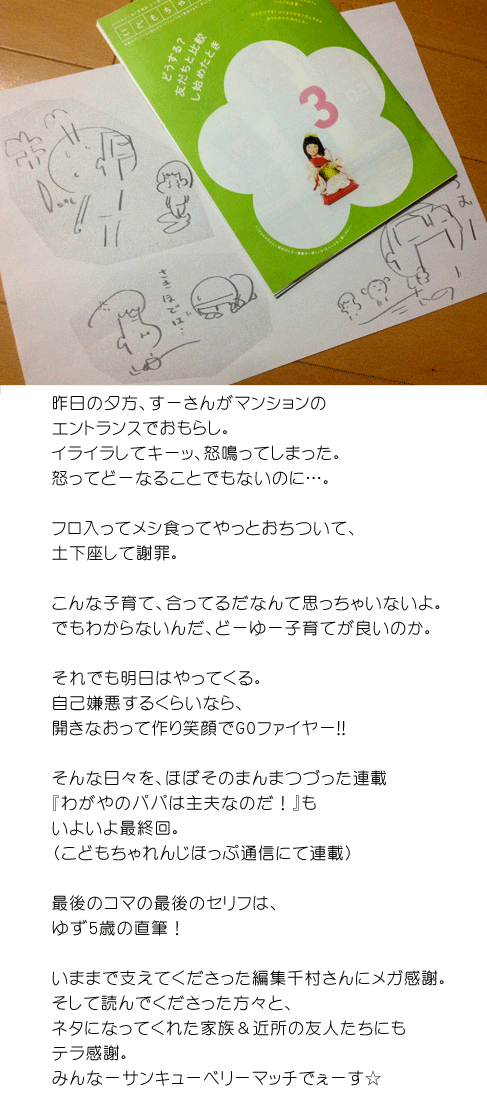 こどもちゃ
どうする?
友だちと比較
し始めたとき
3
さきほどは…
昨日の夕方、すーさんがマンションの
エントランスでおもらし。
イライラしてキーッ、怒鳴ってしまった。
怒ってどーなることでもないのに…。
フロ入ってメシ食ってやっとおちついて、
土下座して謝罪。
こんな子育て、合ってるだなんて思っちゃいないよ。
でもわからないんだ、どーゆー子育てが良いのか。
それでも明日はやってくる。
自己嫌悪するくらいなら、
開きなおって作り笑顔でGOファイヤー!!
そんな日々を、ほぼそのまんまつづった連載
『わがやのパパは主夫なのだ!』も
いよいよ最終回。
(こどもちゃれんじほっぷ通信にて連載)
最後のコマの最後のセリフは、
ゆず5歳の直筆!
いままで支えてくださった編集千村さんにメガ感謝。
そして読んでくださった方々と、
ネタになってくれた家族&近所の友人たちにも
テラ感謝。
みんなーサンキューベリーマッチでぇーす☆